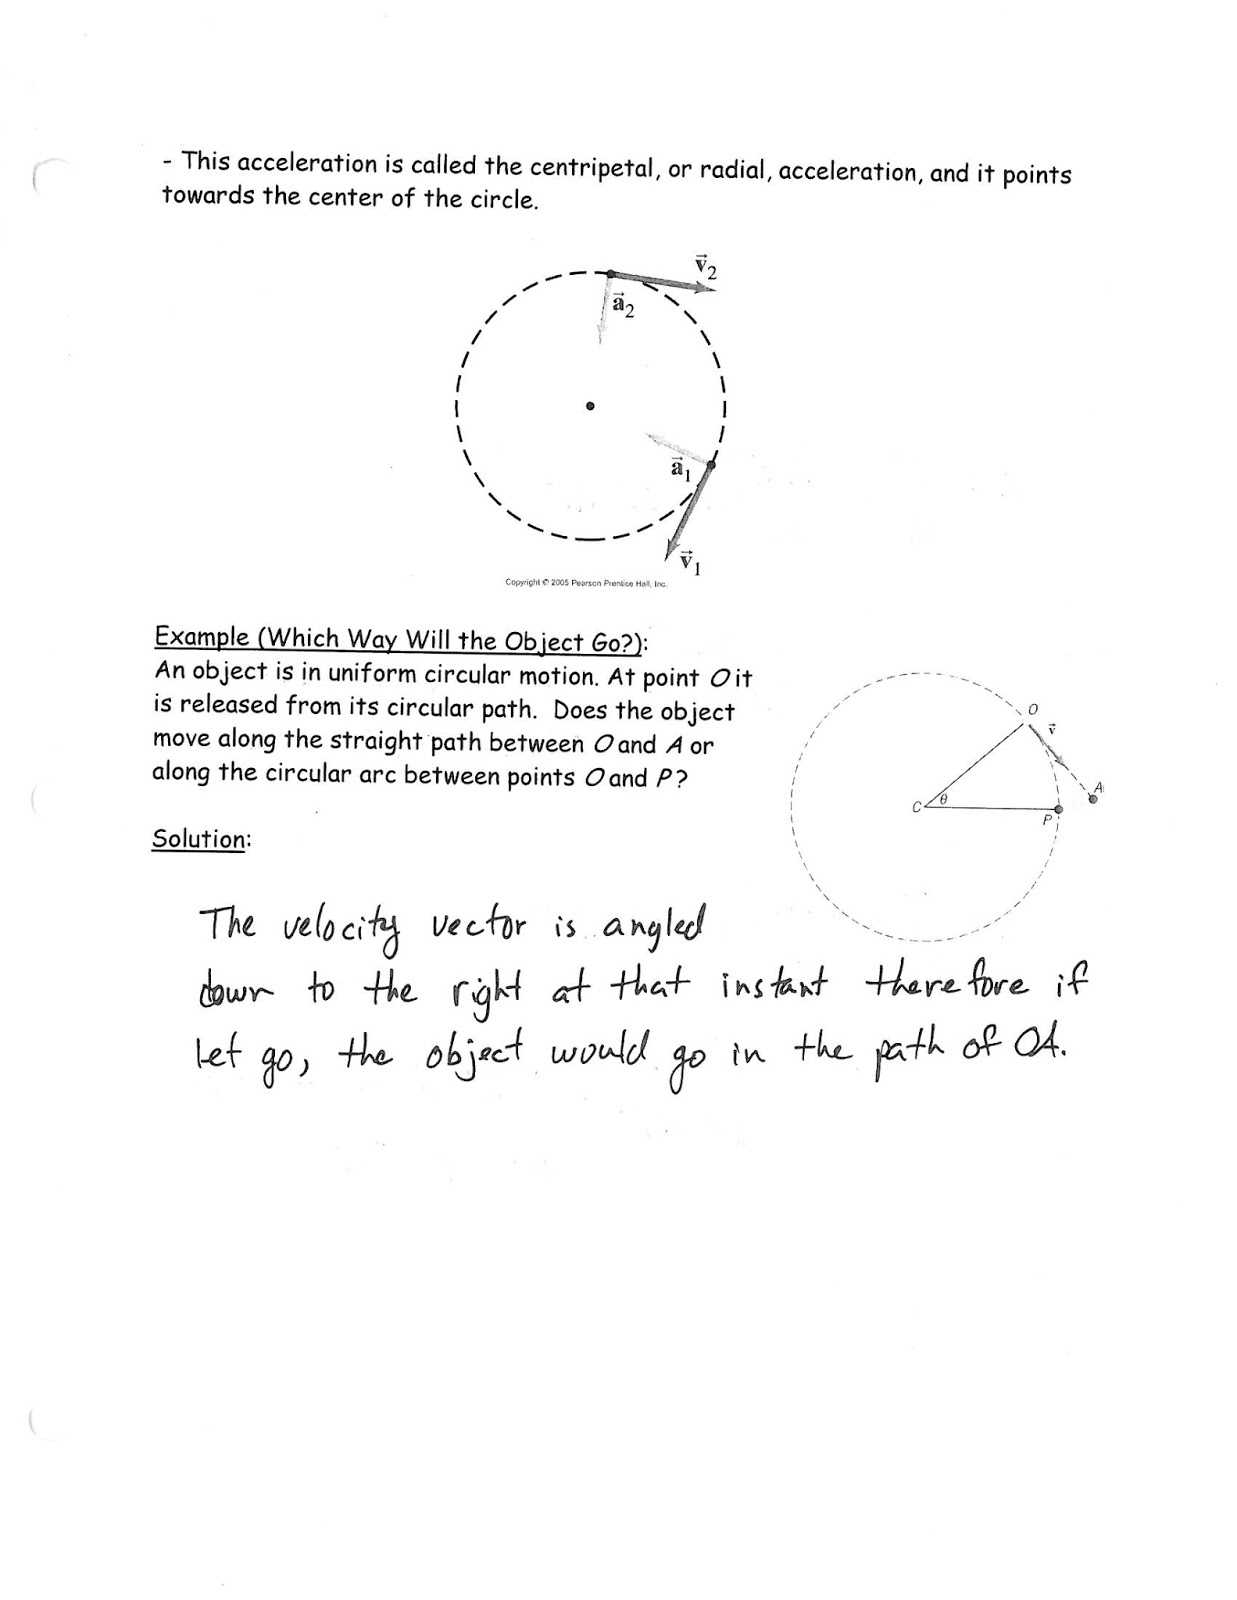 - This acceleration is called the centripetal, or radial, acceleration, and it points
towards the center of the circle.
v⃗2
a⃗2
a⃗1
v⃗1
Copyright © 2005 Pearson Prentice Hall, Inc.
Example (Which Way Will the Object Go?):
An object is in uniform circular motion. At point O it
is released from its circular path. Does the object
move along the straight path between O and A or
along the circular arc between points O and P?
O
v⃗
A
C
θ
P
Solution:
The velocity vector is angled
down to the right at that instant therefore if
let go, the object would go in the path of OA.